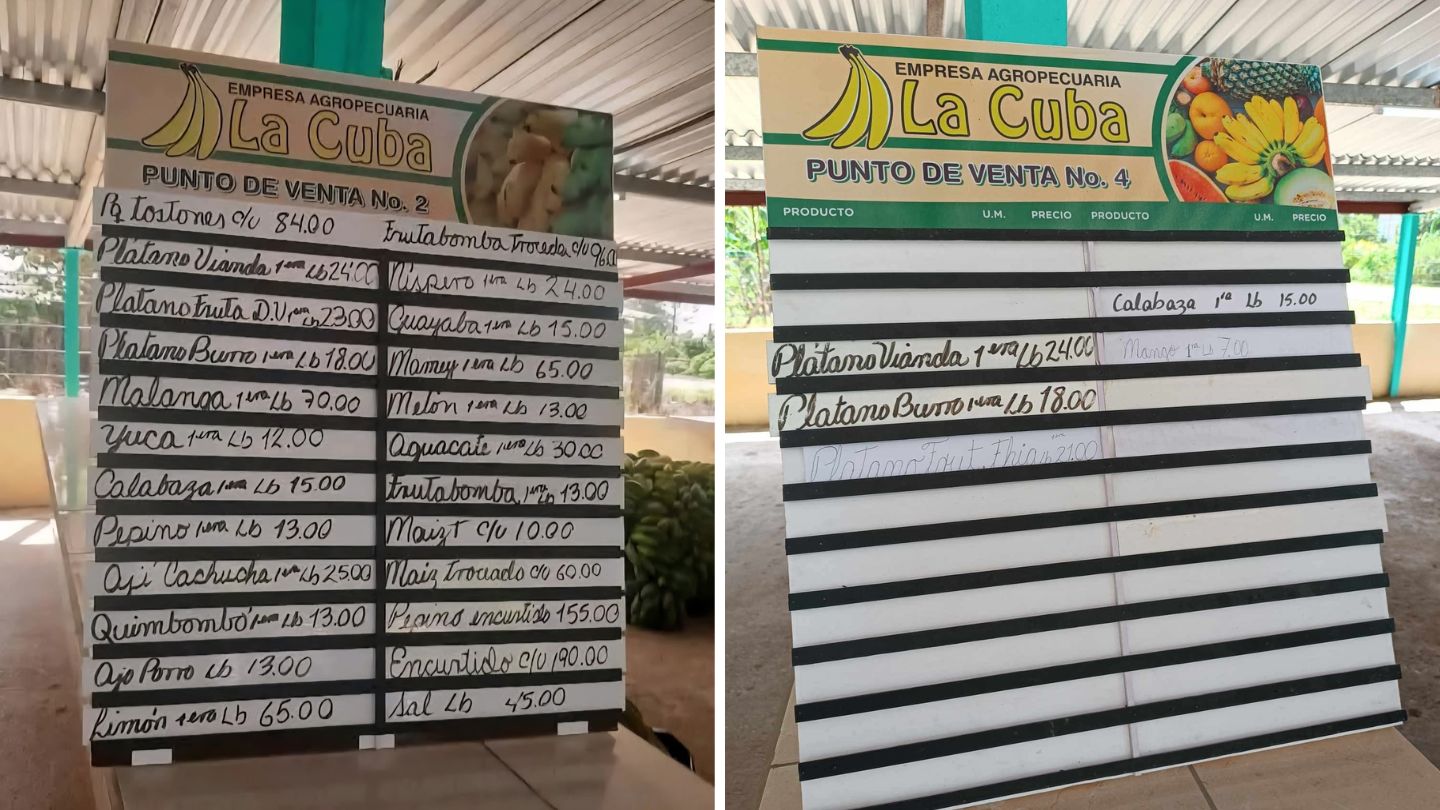 EMPRESA AGROPECUARIA
La Cuba
PUNTO DE VENTA No. 2
Pq tostones c/u 84.00
Plátano Vianda 1era Lb 24.00
Plátano Fruta D.V 1era Lb 23.00
Plátano Burro 1era Lb 18.00
Malanga 1era Lb 70.00
Yuca 1era Lb 12.00
Calabaza 1era Lb 15.00
Pepino 1era Lb 13.00
Ají Cachucha 1era Lb 25.00
Quimbombó 1era Lb 13.00
Ajo Porro Lb 13.00
Limón 1era Lb 65.00
Frutabomba Troceada c/u 96.00
Níspero 1era Lb 24.00
Guayaba 1era Lb 15.00
Mamey 1era Lb 65.00
Melón 1era Lb 13.00
Aguacate 1era Lb 30.00
Frutabomba 1era Lb 13.00
Maiz T c/u 10.00
Maiz Troceado c/u 60.00
Pepino encurtido 155.00
Encurtido c/u 190.00
Sal Lb 45.00
EMPRESA AGROPECUARIA
La Cuba
PUNTO DE VENTA No. 4
PRODUCTO U.M. PRECIO PRODUCTO U.M. PRECIO
Plátano Vianda 1era Lb 24.00
Platano Burro 1era Lb 18.00
Platano Frut. Fhia 1ra Lb 21.00
Calabaza 1ra Lb 15.00
Mango 1ra Lb 7.00